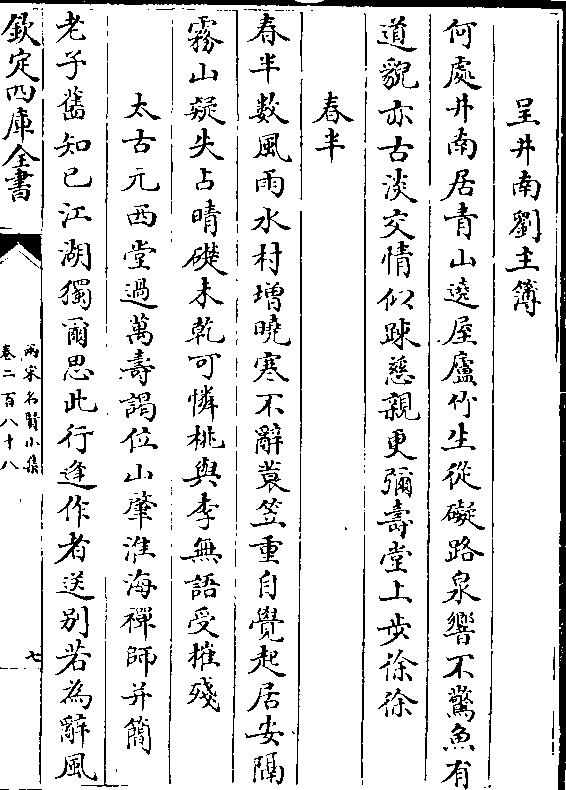 呈井南劉主簿
何處井南居青山遶屋廬竹生從礙路泉響不驚魚有
道貌亦古淡交情似踈慈親更彌壽堂上步徐徐
春半
春半數風雨水村增曉寒不辭蓑笠重自覺起居安隔
霧山疑失占晴礎未乾可憐桃與李無語受摧殘
太古元西堂過萬壽謁位山肇淮海禪師并簡
老子舊知已江湖獨爾思此行逢作者送别若為辭風
欽定四庫全書
兩宋名賢小集
卷二百八十八
七